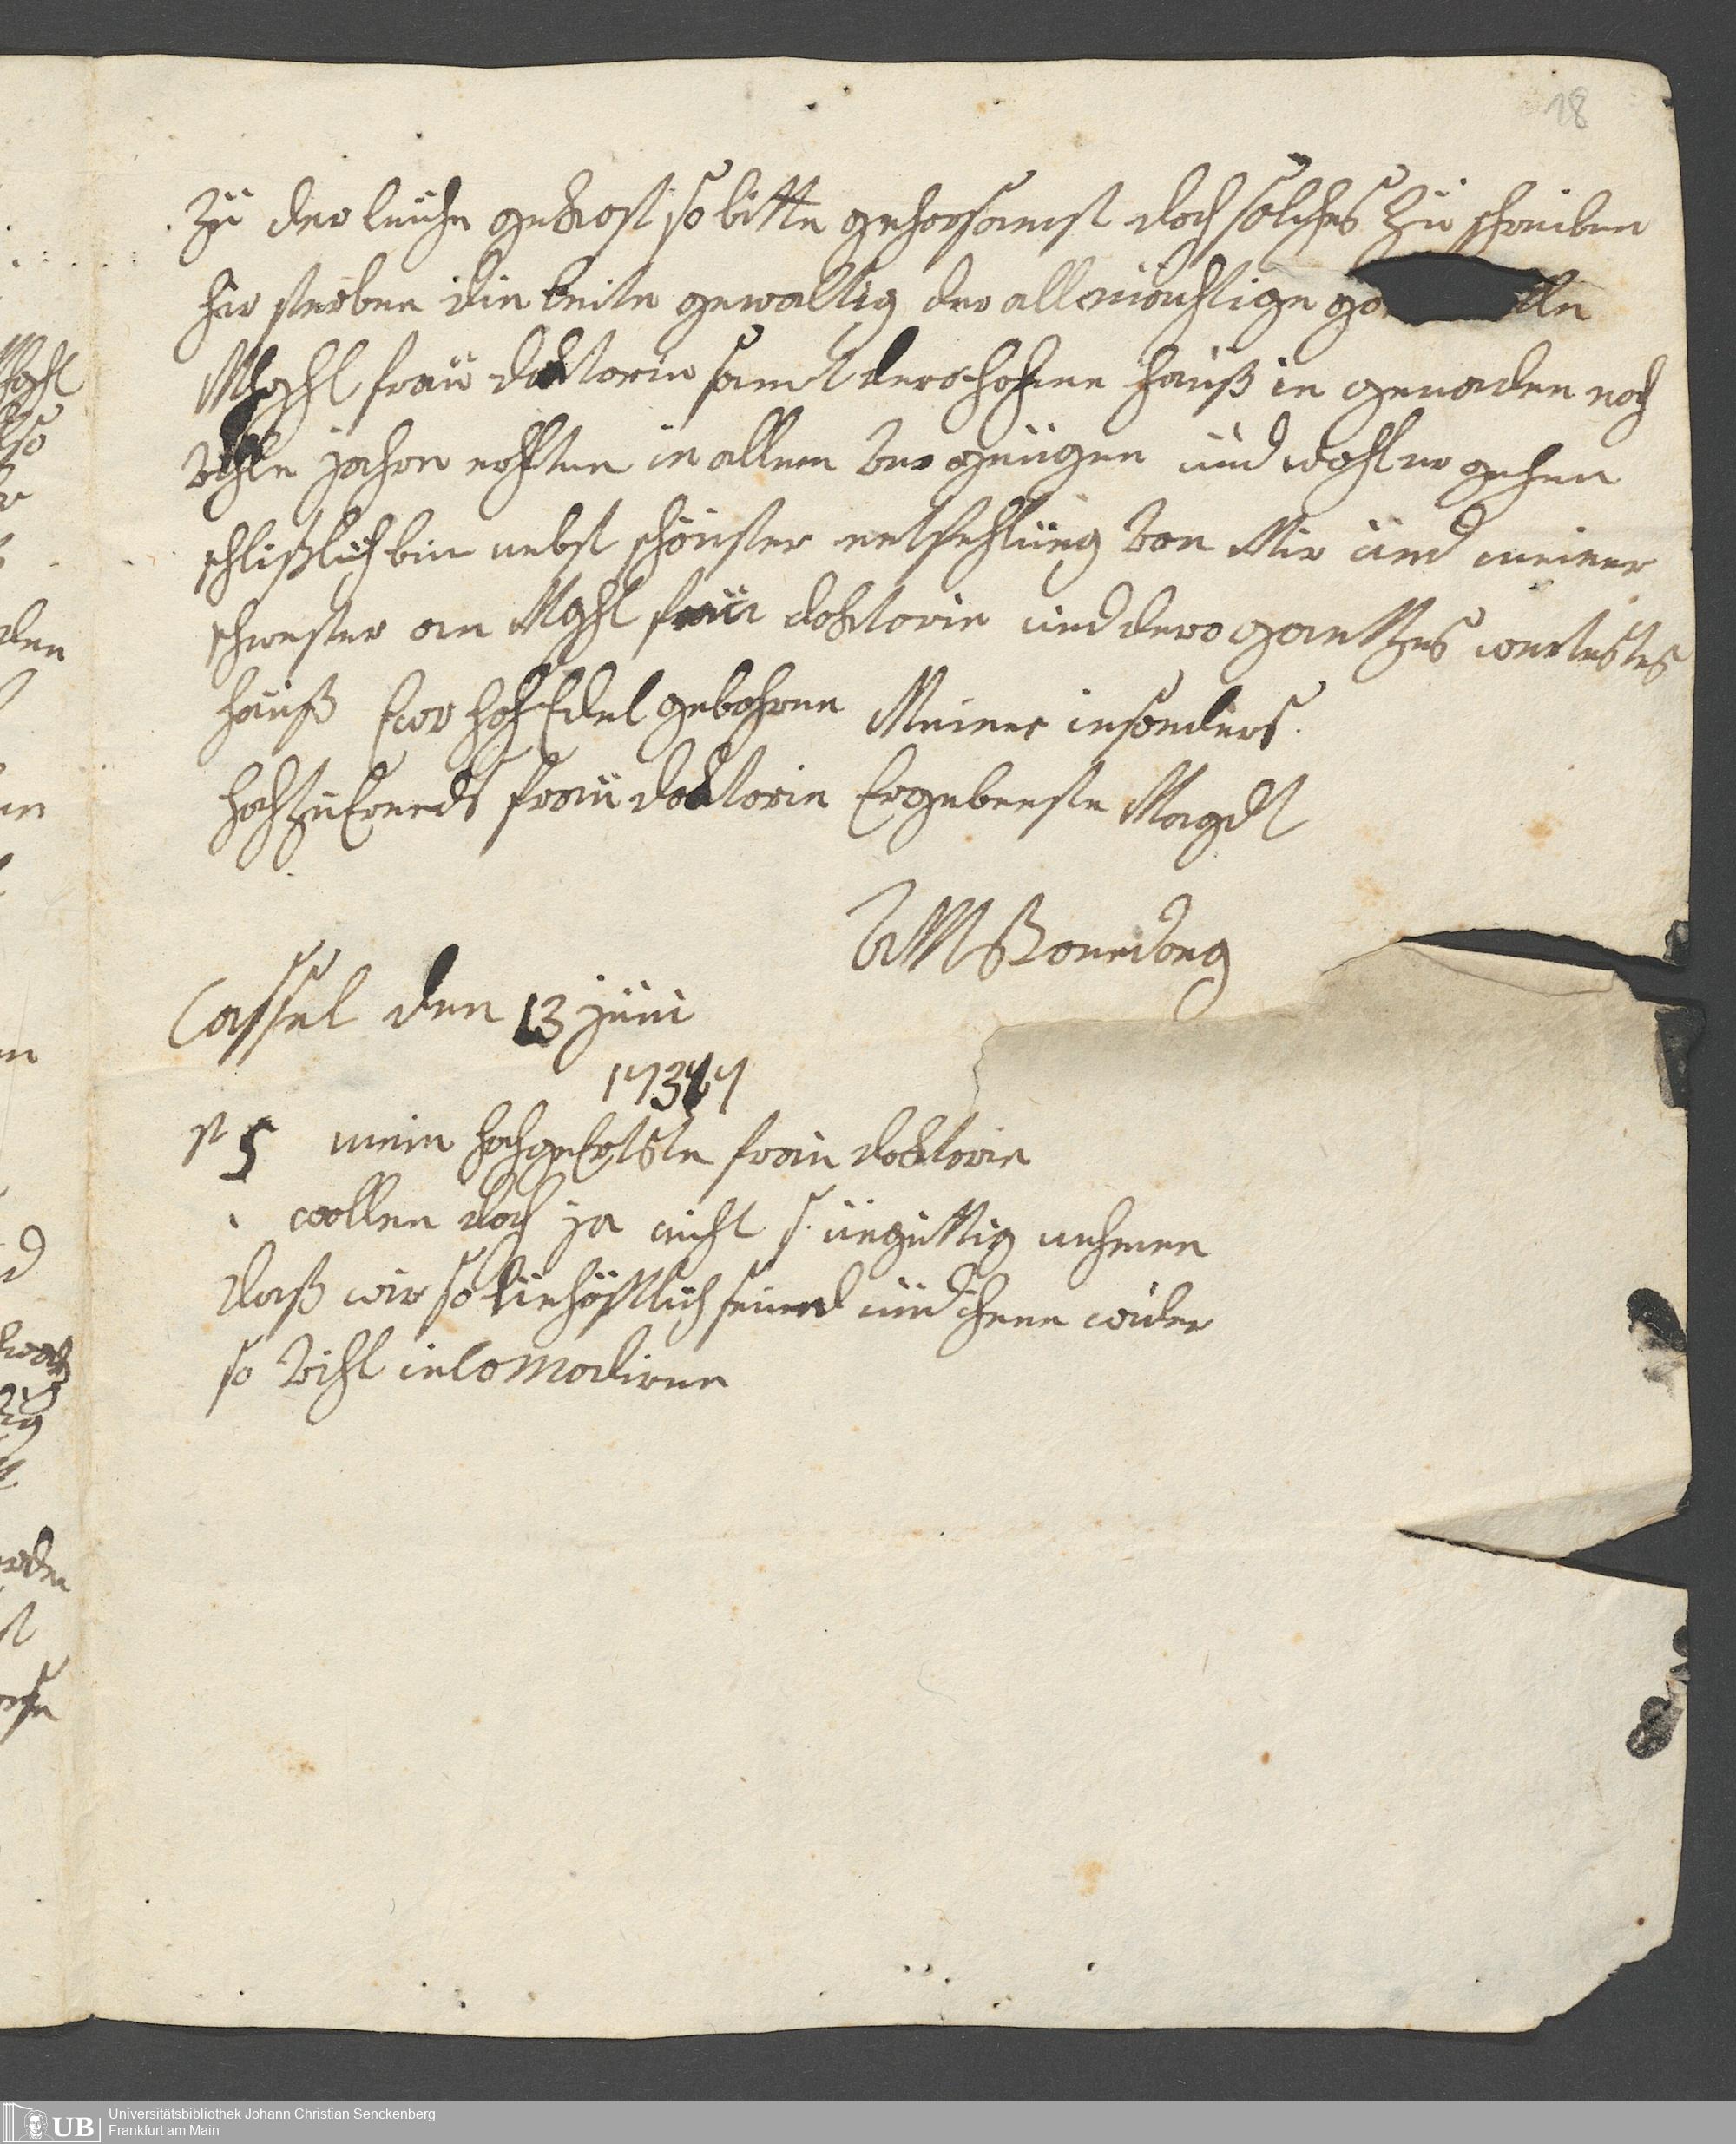 18
zü der leiche gekost so bitte gehorsamst doch solches zü schreiben
hir sterben die leite gewaltig der allmächtige go
Mhghl fraü doktorin samt dero hohen hauß in genaden noch
vihle jahre erhlten in allem vergnügen und wohl er gehen
schlißlich bin nebst schönster entpfehlüng von Mir ünd meiner
schwester an Mhghl fraü doktorin ünd dero ganttzes wertestes
hauß Ewr hoch Edel gebohren Meiner insonders
hochzu Erends fraü doktorin Ergebenste Magdt
Cassel den 13 jüni
PS mein hoch geErtste fraü doktorin
wollen doch ja nicht üngüttig nehmen
daß wir so ünhöfflich seind ünd ihnen wider
so vihl inComodiren
UB
Universitätsbibliothek Johann Christian Senckenberg
Frankfurt am Main